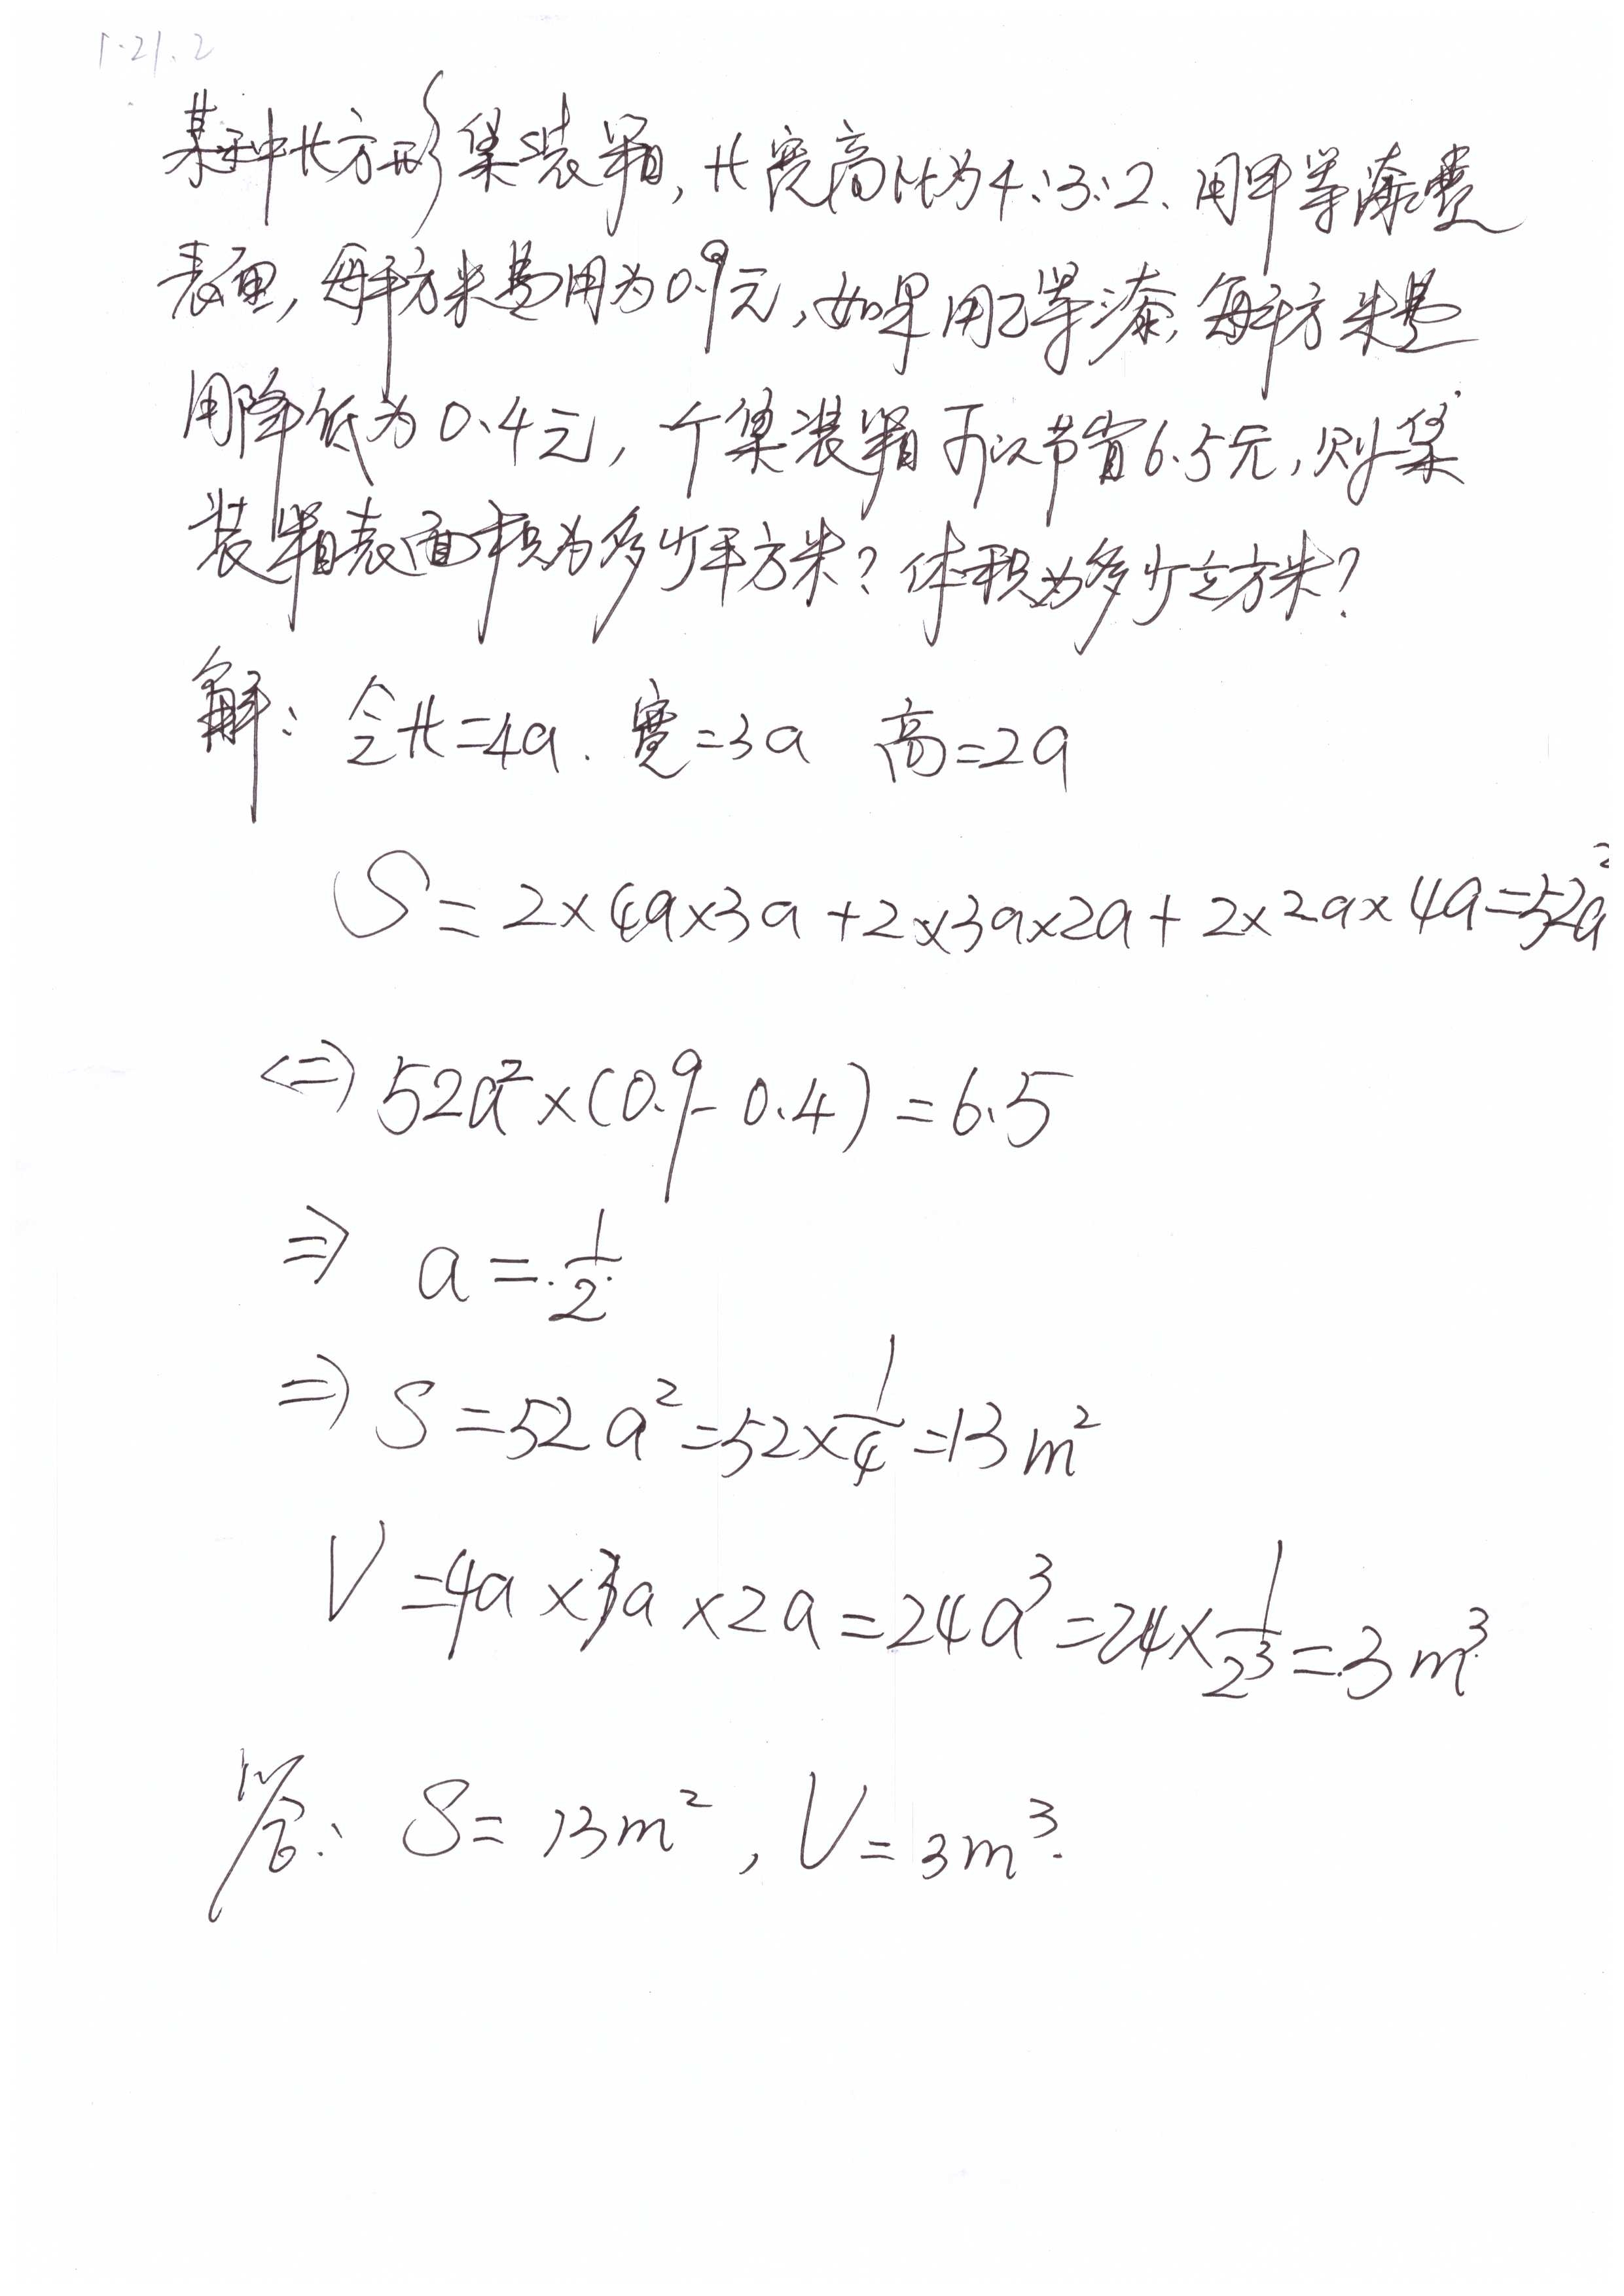 1.21.2
某种长方形集装箱,长宽高比为4:3:2、用甲等漆费
表面,每平方米费用为0.9元,如果用乙等漆,每平方米费
用降低为0.4元,一个集装箱可以节省6.5元,则集
装箱表面积为多少平方米?体积为多少立方米?
解:令长=4a.宽=3a 高=2a
S=2×4a×3a+2×3a×2a+2×2a×4a=52a²
<=> 52a²×(0.9-0.4)=6.5
=> a=1/2
=> S=52a²=52×1/4=13m²
V=4a×3a×2a=24a³=24×1/2³=3m³
答:S=13m²,V=3m³.